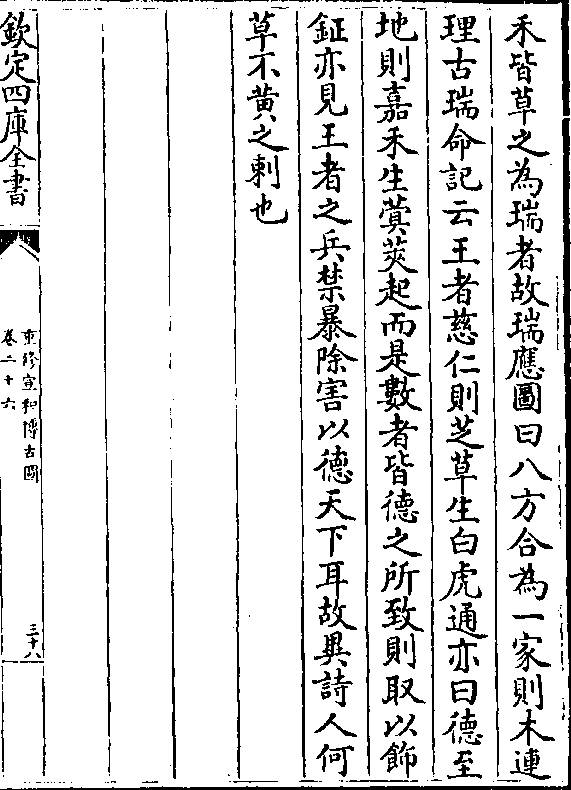 禾皆草之為瑞者故瑞應圖曰八方合為一家則木連
理古瑞命記云王者慈仁則芝草生白虎通亦曰德至
地則嘉禾生蓂莢起而是數者皆德之所致則取以飾
鉦亦見王者之兵禁暴除害以德天下耳故異詩人何
草不黄之刺也
欽定四庫全書
重修宣和博古圖
卷二十六
三十八